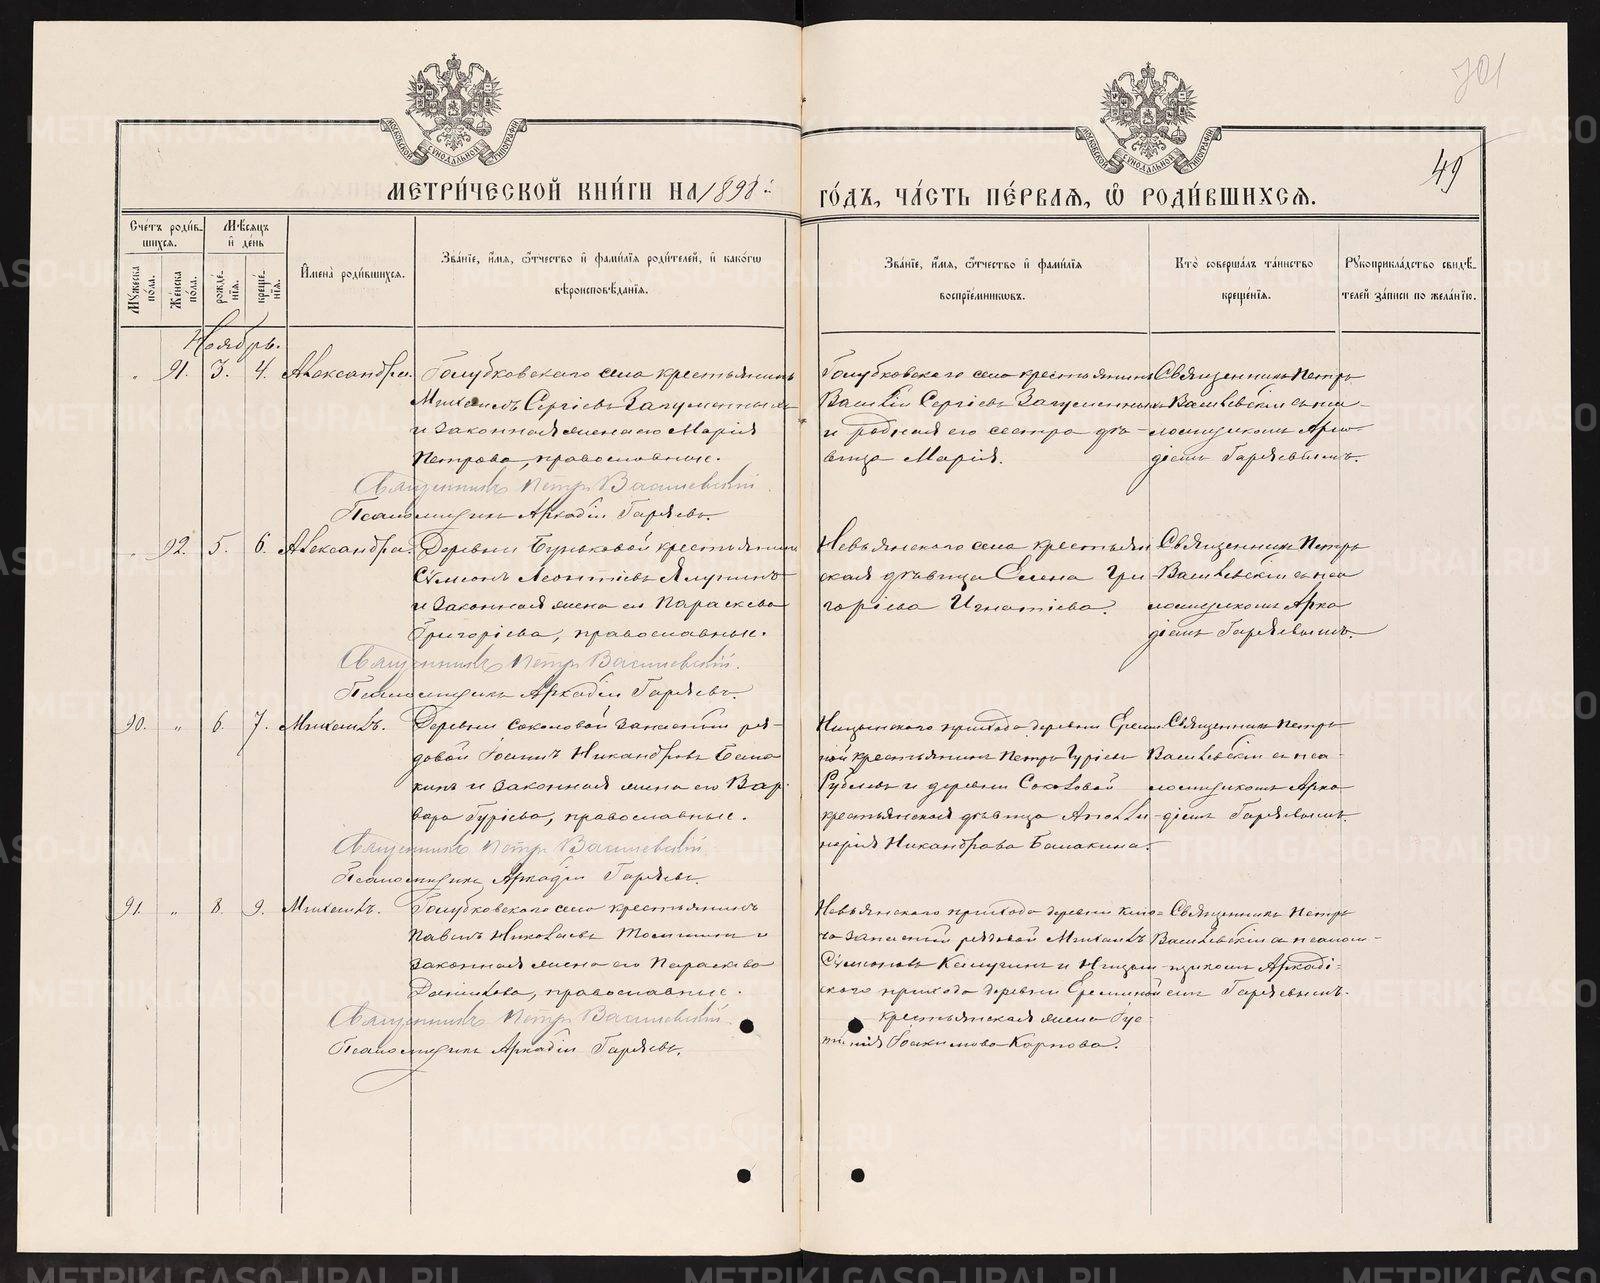 701
49
МОСКОВСКОЙ СѴНОДАЛЬНОЙ ТИПОГРАФІИ
МОСКОВСКОЙ СѴНОДАЛЬНОЙ ТИПОГРАФІИ
МЕТРИ́ЧЕСКОЙ КНИ́ГИ НА 1898 й
ГО́ДЪ, ЧА́СТЬ ПЕ́РВАЯ, Ѡ РОДИ́ВШИХСЯ.
Сче́тъ роди́в-
шихся.
Мѣ́сяцъ
и҆ де́нь
Мꙋ́жеска
по́ла.
Же́нска
по́ла.
рожде́-
нїѧ.
креще́-
нїѧ.
И҆мена̀ роди́вшихся.
Зва́нїе, и҆́мѧ, ѻ҆́тчество и҆ фами́лїѧ роди́телей, и҆ како́гѡ
вѣроисповѣ́данїѧ.
Зва́нїе, и҆́мѧ, ѻ҆́тчество и҆ фами́лїѧ
воспрїе́мникѡвъ.
Кто̀ соверша́лъ та́инство
креще́нїѧ.
Рꙋкоприкла́дство свидѣ́-
телей за́писи по жела́нїю.
Ноябрь.
" 91. 3. 4. Александра.
Голубковскаго села крестьянинъ
Михаилъ Сергіевъ Загуменныхъ
и законная жена его Марія
Петрова, православные.
Священникъ Петръ Василевскій
Псаломщикъ Аркадій Гаряевъ.
Голубковскаго села крестьянинъ
Василій Сергіевъ Загуменныхъ
и родная его сестра дѣ-
вица Марія.
Священникъ Петръ
Василевскій съ пса-
ломщикомъ Арка-
діемъ Гаряевымъ.
" 92. 5. 6. Александра.
Деревни Буньковой крестьянинъ
Сѵмеонъ Леонтіевъ Ялунинъ
и законная жена его Параскева
Григоріева, православные.
Священникъ Петръ Василевскій.
Псаломщикъ Аркадій Гаряевъ.
Невьянскаго села крестьян-
ская дѣвица Елена Гри-
горіева Игнатіева.
Священникъ Петръ
Василевскій съ пса-
ломщикомъ Арка-
діемъ Гаряевымъ.
90. " 6. 7. Михаилъ.
Деревни Соколовой запасный ря-
довой Іоаннъ Никандровъ Бала-
кинъ и законная жена его Вар-
вара Гуріева, православные.
Священникъ Петръ Василевскій
Псаломщикъ Аркадій Гаряевъ.
Ницынскаго прихода деревни Ереми-
ной крестьянинъ Петръ Гуріевъ
Рублевъ и деревни Соколовой
крестьянская дѣвица Аполли-
нарія Никандрова Балакина.
Священникъ Петръ
Василевскій съ пса-
ломщикомъ Арка-
діемъ Гаряевымъ.
91. " 8. 9. Михаилъ.
Голубковскаго села крестьянинъ
Павелъ Николаевъ Томшинъ и
законная жена его Параскева
Даніилова, православные.
Священникъ Петръ Василевскій
Псаломщикъ Аркадій Гаряевъ.
Невьянскаго прихода деревни
запасный рядовой Михаилъ
Сѵмеоновъ Калугинъ и Ницын-
скаго прихода деревни Ереминой
крестьянская жена Іус-
тинія Іоакимова Карпова.
Священникъ Петръ
Василевскій съ псалом-
щикомъ Аркаді-
емъ Гаряевымъ.
METRIKI.GASO-URAL.RU